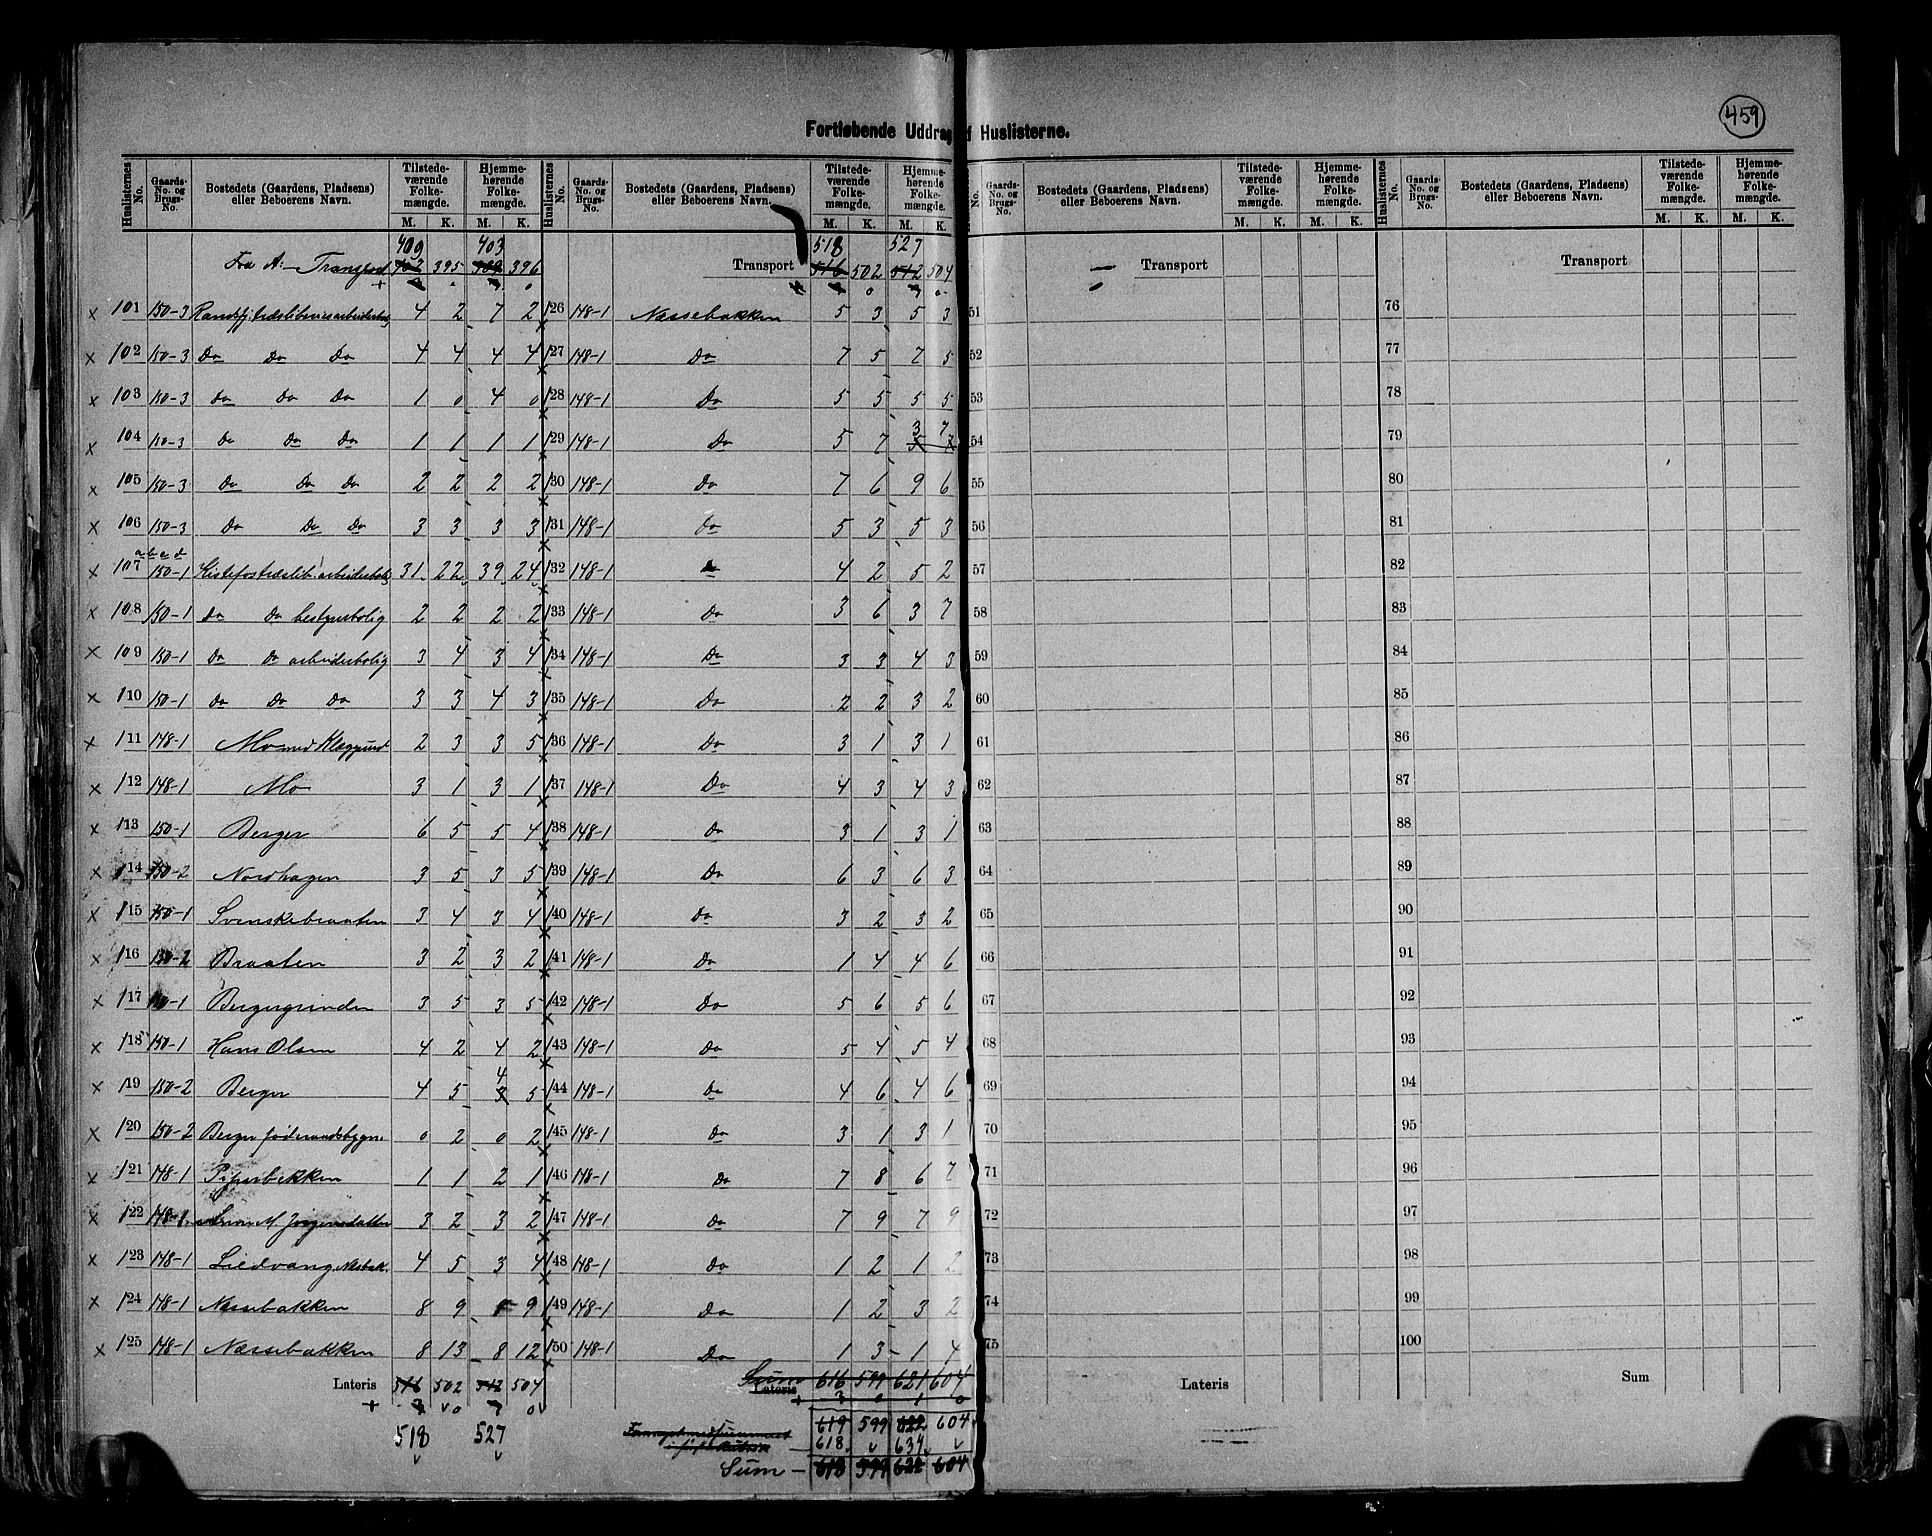 459
Fortløbende Uddrag af Huslisterne.
Huslisternes No. Gaards-No. og Brugs-No. Bostedets (Gaardens, Pladsens) eller Beboerens Navn. Tilstedeværende Folkemængde. M. K. Hjemmehørende Folkemængde. M. K.
409 403
Fra A: Transport 395 396
101 150-3 4 2 7 2
102 150-3 Do Do Do 4 4 4 4
103 150-3 Do Do Do 1 0 4 0
104 150-3 Do Do Do 1 1 1 1
105 150-3 Do Do Do 2 2 2 2
106 150-3 Do Do Do 3 3 3 3
a b c d
107 150-1 31 22 39 24
108 150-1 Do Do bestyrerbolig 2 2 2 2
109 150-1 Do Do arbeiderbolig 3 4 3 4
110 150-1 Do Do Do 3 3 4 3
111 148-1 Mo med Kleggund 2 3 3 5
112 148-1 Mo 3 1 3 1
113 150-1 Berger 6 5 5 4
114 150-2 Nordhagen 3 5 3 5
115 150-1 Svenskebraaten 3 4 3 4
116 150-2 Braaten 3 2 3 2
117 150-1 Bergergrinden 3 5 3 5
118 150-1 Hans Olsen 4 2 4 2
119 150-2 Berger 4 5 4 5
120 150-2 Berger føderaadsbygn. 0 2 0 2
121 148-1 Piperbakken 1 1 2 1
122 148-1 M. Jørgensdatter 3 2 3 2
123 148-1 Liedvang 4 5 3 4
124 148-1 Næssebakken 8 9 9
125 148-1 Næssebakken 8 13 8 12
Lateris 516 502 512 504
518 527
Huslisternes No. Gaards-No. og Brugs-No. Bostedets (Gaardens, Pladsens) eller Beboerens Navn. Tilstedeværende Folkemængde. M. K. Hjemmehørende Folkemængde. M. K.
518 527
Transport 516 502 512 504
126 148-1 Næssebakken 5 3 5 3
127 148-1 Do 7 5 7 5
128 148-1 Do 5 5 5 5
129 148-1 Do 5 7 3 7
130 148-1 Do 7 6 9 6
131 148-1 Do 5 3 5 3
132 148-1 Do 4 2 5 2
133 148-1 Do 3 6 3 7
134 148-1 Do 3 3 4 3
135 148-1 Do 2 2 3 2
136 148-1 Do 3 1 3 1
137 148-1 Do 4 3 4 3
138 148-1 Do 3 1 3 1
139 148-1 Do 6 3 6 3
140 148-1 Do 3 2 3 2
141 148-1 Do 1 4 4 6
142 148-1 Do 5 6 5 6
143 148-1 Do 5 4 5 4
144 148-1 Do 4 6 4 6
145 148-1 Do 3 1 3 1
146 148-1 Do 7 8 6 7
147 148-1 Do 7 9 7 9
148 148-1 Do 1 2 1 2
149 148-1 Do 1 2 3 2
150 148-1 Do 1 3 1 4
Sum Lateris 616 599 621 604
+ 3 0 1 0
619 599 622 604
618 634
Sum 618 599 622 604
No. Gaards-No. og Brugs-No. Bostedets (Gaardens, Pladsens) eller Beboerens Navn. Tilstedeværende Folkemængde. M. K. Hjemmehørende Folkemængde. M. K.
Transport
51
52
53
54
55
56
57
58
59
60
61
62
63
64
65
66
67
68
69
70
71
72
73
74
75
Lateris
Huslisternes No. Gaards-No. og Brugs-No. Bostedets (Gaardens, Pladsens) eller Beboerens Navn. Tilstedeværende Folkemængde. M. K. Hjemmehørende Folkemængde. M. K.
Transport
76
77
78
79
80
81
82
83
84
85
86
87
88
89
90
91
92
93
94
95
96
97
98
99
100
Sum